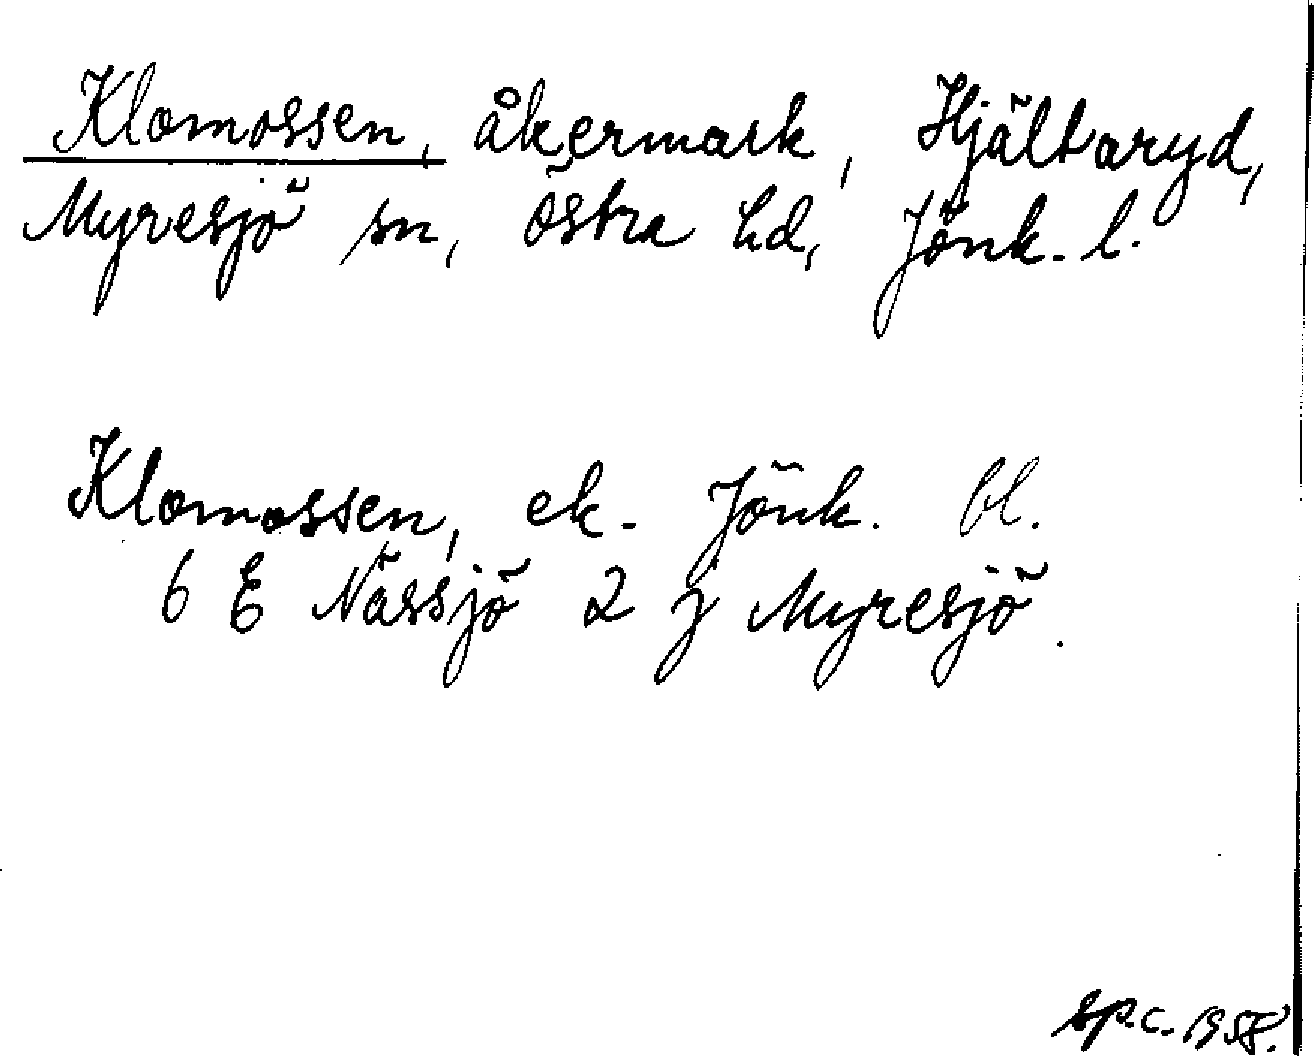 Klomossen, åkermark, Hjältaryd,
Myresjö sn, östra hd, Jönk. l.
Klomossen, ek. Jönk. bl.
6 E Nässjö 2 j Myresjö.
sp.c. 1958.